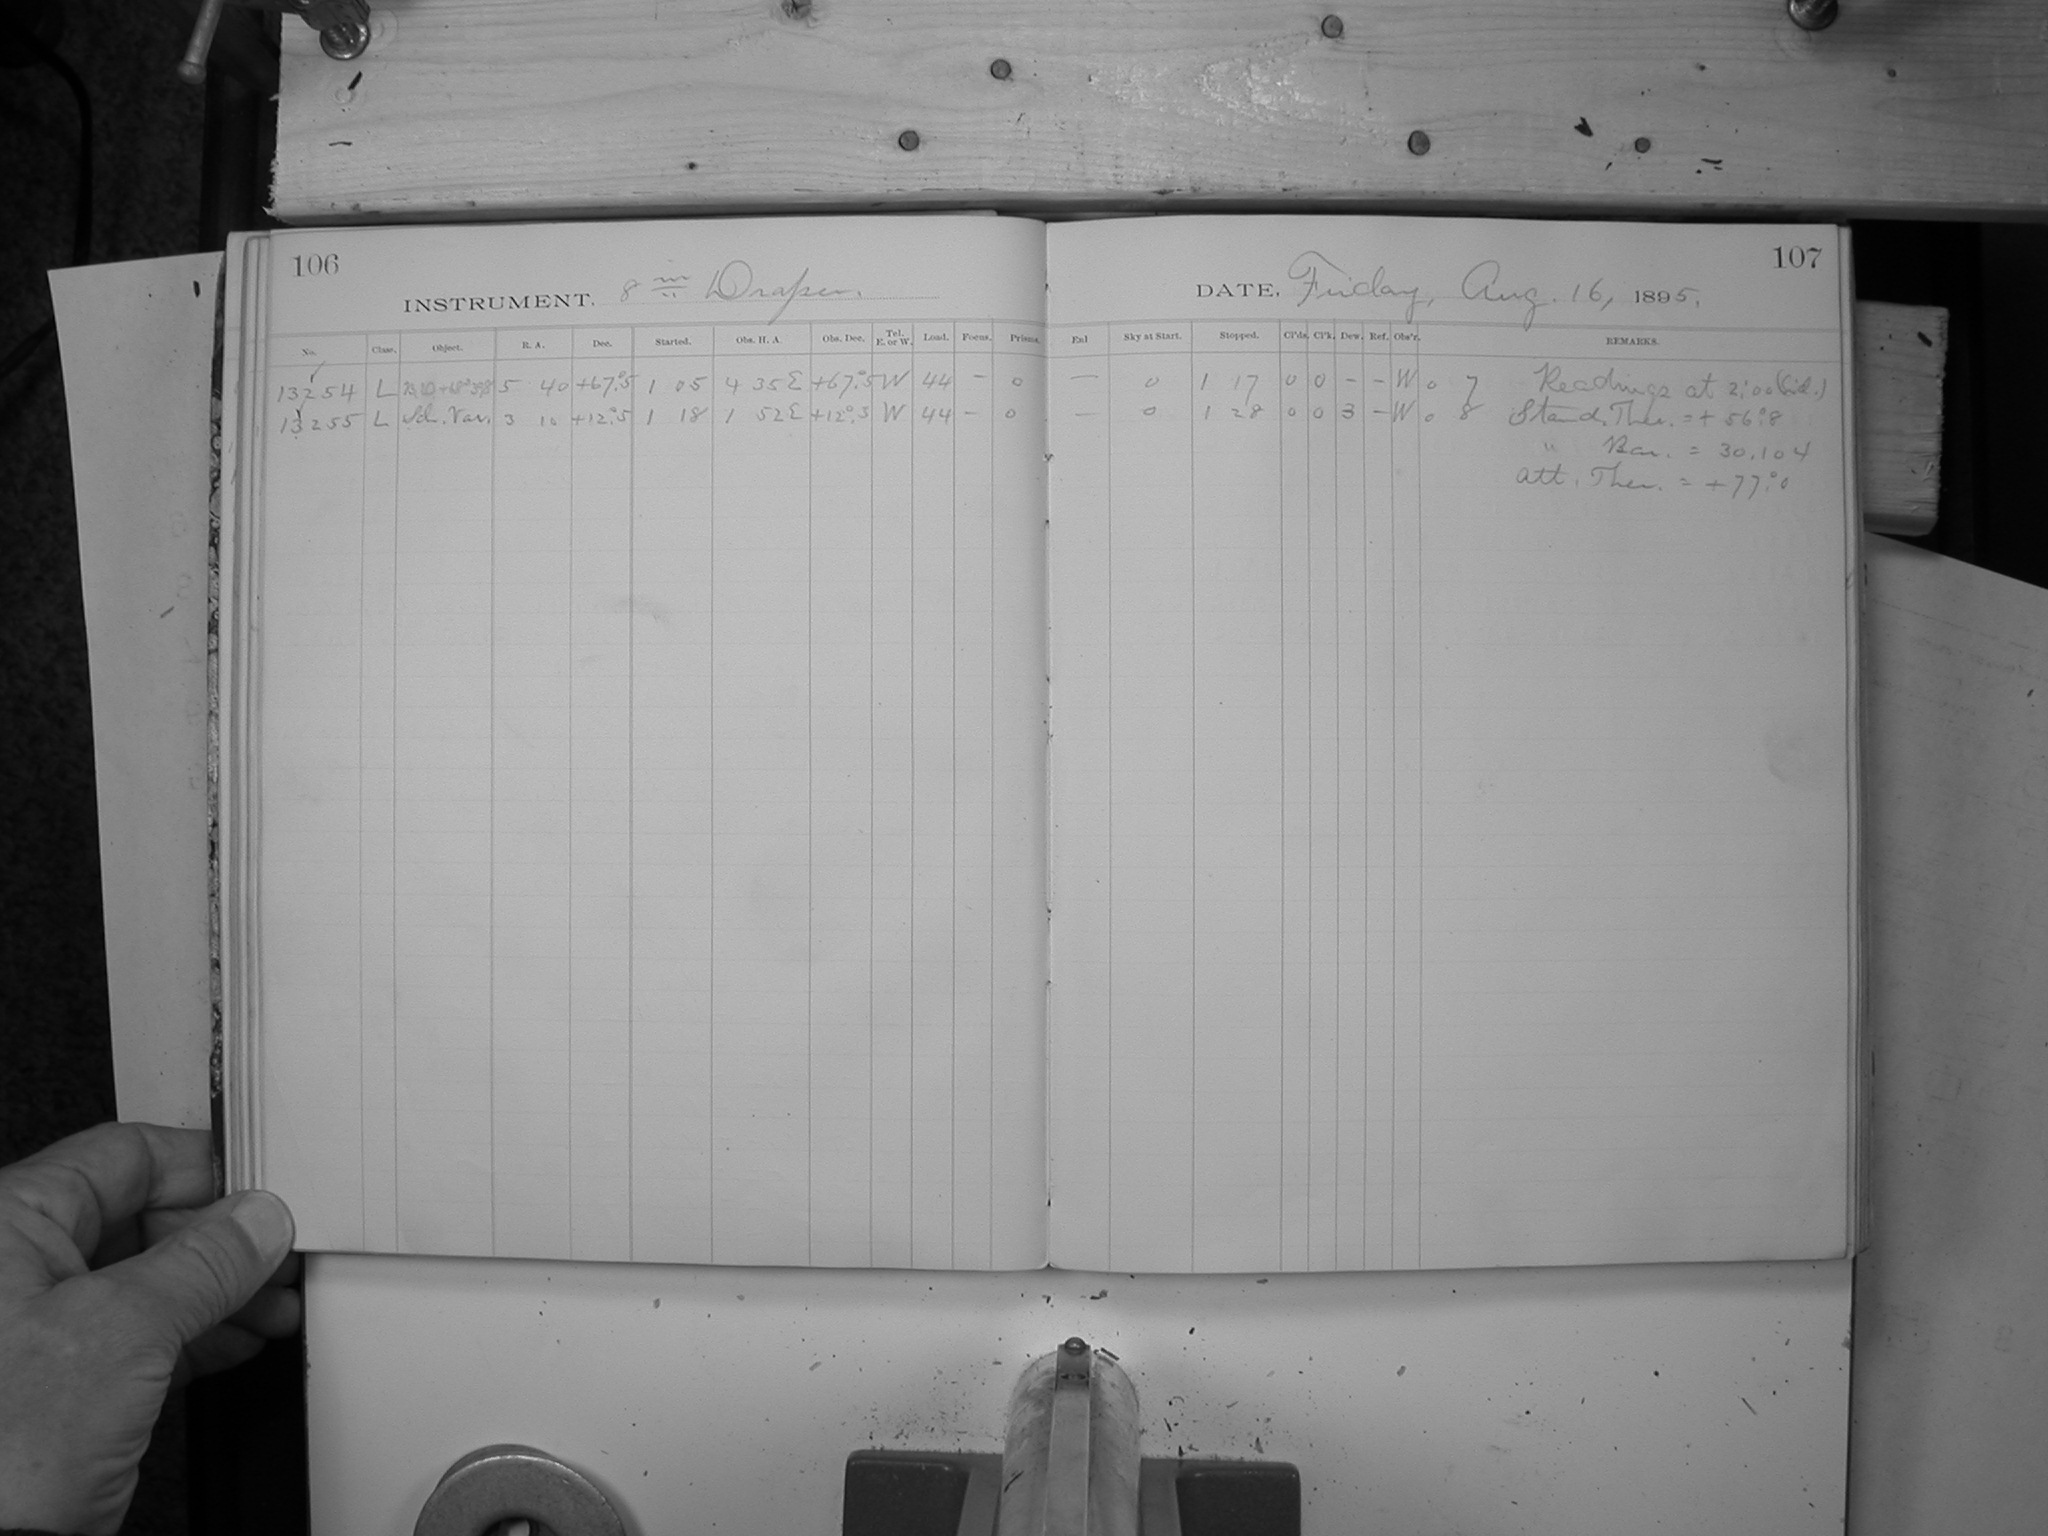 106
INSTRUMENT. 8 in Draper.
No. Class. Object. R. A. Dec. Started. Obs. H. A. Obs. Dec. Tel. E. or W. Load. Focus. Prisms.
13254 L 5 40 +67°.5 1 05 4 35 E +67°.5 W 44 - 0
13255 L Sch. Var. 3 10 +12°.5 1 18 1 52 E +12°.3 W 44 - 0
107
DATE, Friday, Aug. 16, 1895.
Enl Sky at Start. Stopped. Cl'ds. Cl'k. Dew. Ref. Obs'r. REMARKS.
— 0 1 17 0 0 - - W 0 7 Readings at 2:00 (Sid.)
— 0 1 28 0 0 3 - W 0 8 Stand. Ther. = + 56°.8
" Bar. = 30.104
Att. Ther. = +77°.0